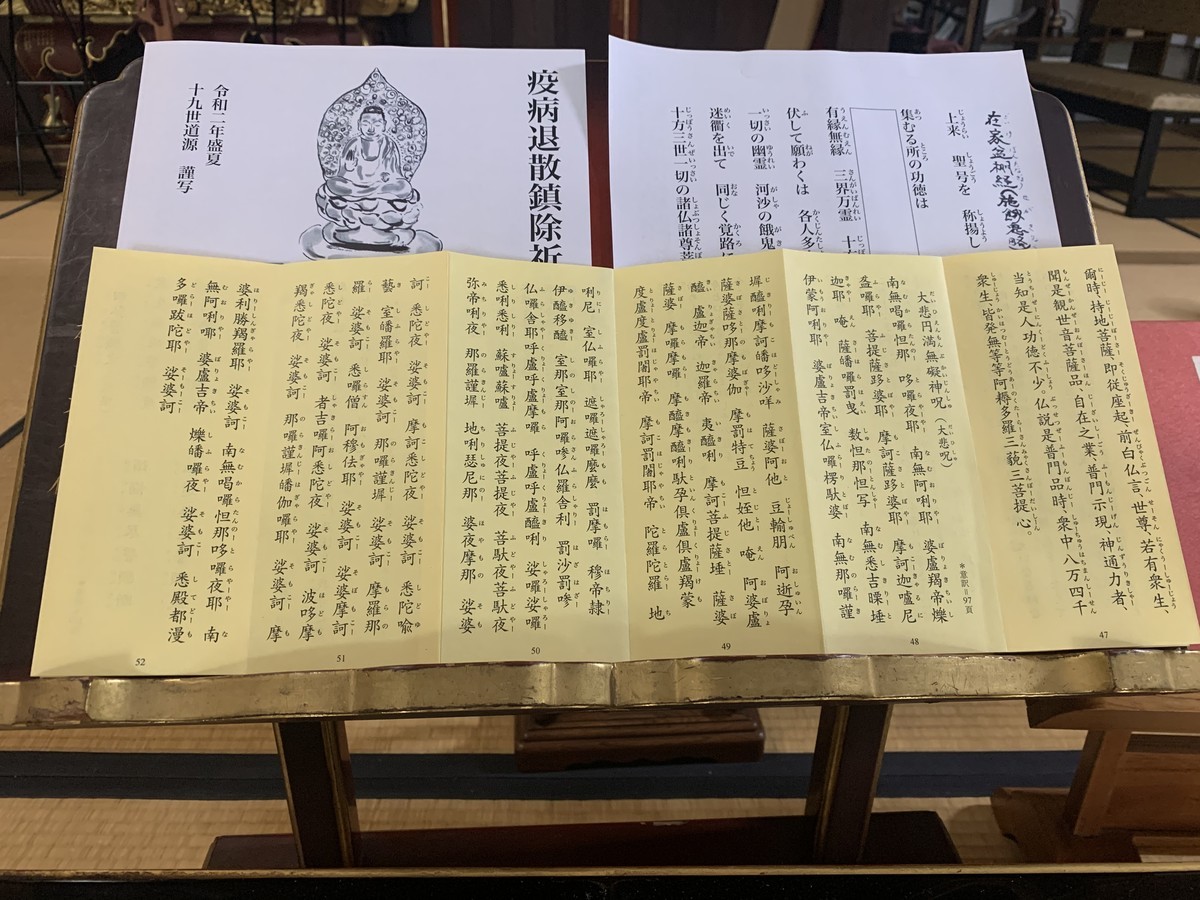 在家棚経
上来　聖号を　称揚し
集むる所の功徳は
有縁無縁　三界万霊　十
伏して願わくは　各人多
一切の幽霊　河沙の餓鬼
迷衢を出て　同じく覚路に
十方三世一切の諸仏諸尊菩
疫病退散鎮除祈
令和二年盛夏
十九世道源　謹写
爾時、持地菩薩、即従座起、前白仏言、世尊、若有衆生、
聞是観世音菩薩品、自在之業、普門示現、神通力者、
当知是人功徳不少。仏説是普門品時、衆中八万四千
衆生、皆発無等等阿耨多羅三藐三菩提心。
47
大悲円満無礙神呪。（大悲呪）
＊意訳＝97頁
南無喝囉怛那　哆囉夜耶　南無阿唎耶　婆盧羯帝爍
盋囉耶　菩提薩跢婆耶　摩訶薩跢婆耶　摩訶迦嚧尼
迦耶　唵　薩皤囉罰曳　数怛那怛写　南無悉吉㗚埵
伊蒙阿唎耶　婆盧吉帝室仏囉楞馱婆　南無那囉謹
48
墀　醯利摩訶皤哆沙咩　薩婆阿他　豆輸朋　阿逝孕
薩婆薩哆那摩婆伽　摩罰特豆　怛姪他　唵　阿婆盧
醯　盧迦帝　迦羅帝　夷醯唎　摩訶菩提薩埵　薩婆
薩婆　摩囉摩囉　摩醯摩醯唎馱孕俱盧俱盧羯蒙
度盧度盧罰闍耶帝　摩訶罰闍耶帝　陀羅陀羅　地
49
唎尼　室仏囉耶　遮囉遮囉麼麼　罰摩囉　穆帝隷
伊醯移醯　室那室那阿囉嘇仏羅舎利　罰沙罰嘇
仏囉舎耶呼嚧呼嚧摩囉　呼嚧呼嚧醯唎　娑囉娑囉
悉唎悉唎　蘇嚧蘇嚧　菩提夜菩提夜　菩馱夜菩馱夜
弥帝唎夜　那囉謹墀　地唎瑟尼那　婆夜摩那　娑婆
50
訶　悉陀夜　娑婆訶　摩訶悉陀夜　娑婆訶　悉陀喩
藝　室皤囉耶　娑婆訶　那囉謹墀　娑婆訶　摩羅那
羅　娑婆訶　悉囉僧　阿穆佉耶　娑婆訶　娑婆摩訶
悉陀夜　娑婆訶　者吉囉阿悉陀夜　娑婆訶　波哆摩
羯悉陀夜　娑婆訶　那囉謹墀皤伽囉耶　娑婆訶　摩
51
婆利勝羯囉耶　娑婆訶　南無喝囉怛那哆囉夜耶　南
無阿唎耶　婆盧吉帝　爍皤囉夜　娑婆訶　悉殿都漫
多囉跋陀耶　娑婆訶
52